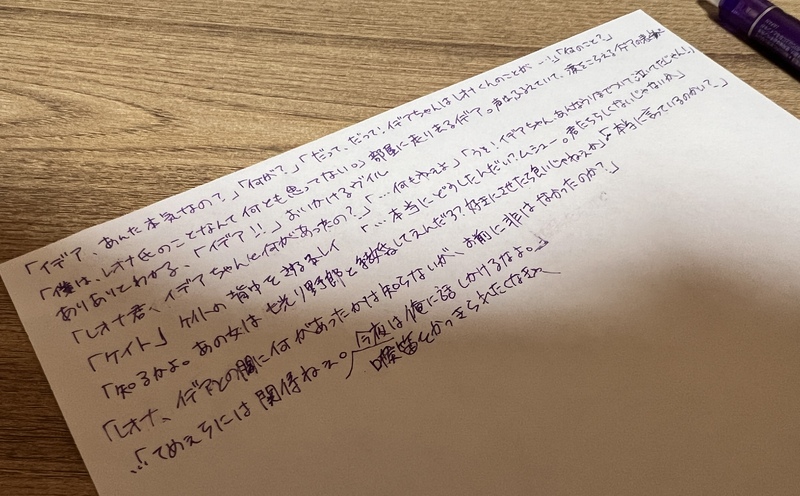 「イデア、あんた本気なの?」「何が?」「だって、だって!イデアちゃんはレオナくんのことが…!」「何のこと?」
「僕は、レオナ氏のことなんて何とも思ってない。」部屋に走り去るイデア。声はふるえていて、涙をこらえるイデアの姿が
ありありとわかる、「イデア!!」おいかけるヴィル
「レオナ君、イデアちゃんと何があったの?」「…何もねぇよ」「うそ!イデアちゃん、あんな泣いてたじゃん!」
「ケイト」ケイトの背中をさするトレイ 「…本当にどうしたんだい?ムシュー。君たちらしくないじゃないか」
「知るかよ。あの女は七光り野郎と結婚してえんだろ?好きにさせたら良いじゃねぇか」「本当に言っているのかい?」
「レオナ、イデアとの間に何があったかは知らないが、お前に非はなかったのか?」
「…てめえらには関係ねぇ。今夜は俺に話しかけるなよ。」
喉笛をかっきられたくなきゃ